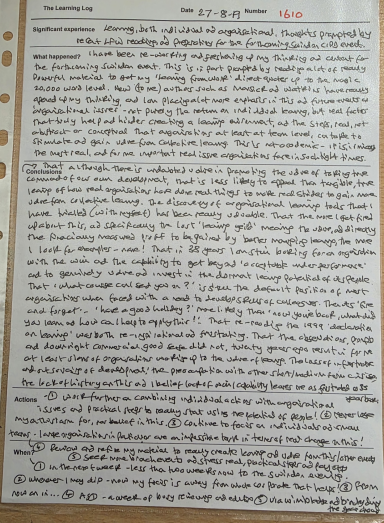 The Learning Log
Date 27-8-19 Number 1610
Significant experience Learning, both individual and organisational. Thoughts prompted by
recent L&D reading and preparation for the forthcoming Swindon CIPD event.
What happened? I have been re-working and refreshing of my thinking and content for
the forthcoming Swindon event. This is in part prompted by reading a lot of really
powerful material to get my 'learning framework' direct quotes up to the magic
20,000 word level. New (to me) authors such as and Watkins have really
my thinking and I am placing a lot more emphasis in this and future events on
organisational issues - not purely the return on individual learning, but real factors
that truly help and hinder creating a learning environment, and the steps, real, not
abstract or conceptual that organisations at least at team level, can take to
stimulate and gain value from collective learning. This is not academic - it is in mixes
the most real, and for me important real issue organisations face in such tight times.
Conclusions That although there is undoubted value in promoting the value of taking true
command of our own development, that is less likely to appeal than tangible, true
learning of how real organisations have done real things to make real strides to gain more
value from collective learning. The discovery of organisational learning tools that I
have trialled (with myself) has been really valuable. That the more I get fired
up about this, and specifically the lost 'learning grids' meaning the value, and directly
the financially measured profit to be gained by better managing learning, the more
I look for examples - now! That in 28 years I am still looking for an organisation
with the will and the capability to get beyond 'acceptable under-performance'
and to genuinely value and invest in the dormant learning potential of its people
That 'what course can I send you on?' is still the default position of most
organisations when faced with a need to develop skills of colleagues. That its 'fire
and forget' - 'have a good holiday?' more likely than 'now you're back, what did
you learn and how can I help to apply this'. That re-reading the 1999 'declaration
on learning' was both inspirational and frustrating. That the absolutely, simple
and downright commercial good sense did not, twenty years ago result in for me
at least signs of organisations waking up to the value of learning. The losses of infrastructure
and outsourcing of development, the preoccupation with other short/medium term crises,
the lack of history on this and a belief lack of capability leaves me as frustrated as 28
years ago
Actions - ① Work further on combining individual actions with organisational
issues and practical steps to really start using the potential of people! ② Never lose
my enthusiasm for, nor belief in this. ③ Continue to focus on individuals and small
teams - large organisations in full are an impossible task in terms of real change in this!
④ Review and refine my material to really create learning and value from this/other events
⑤ Seek more involvements and stress real, practical steps and pay offs
When? ① In the next week - less than two weeks now to the Swindon event
② Whenever I may dip - now my focus is away from whole corporate that helps ③ From
now on in... ④ ASAP - a week of busy reviews and edits ⑤ Via
the same change